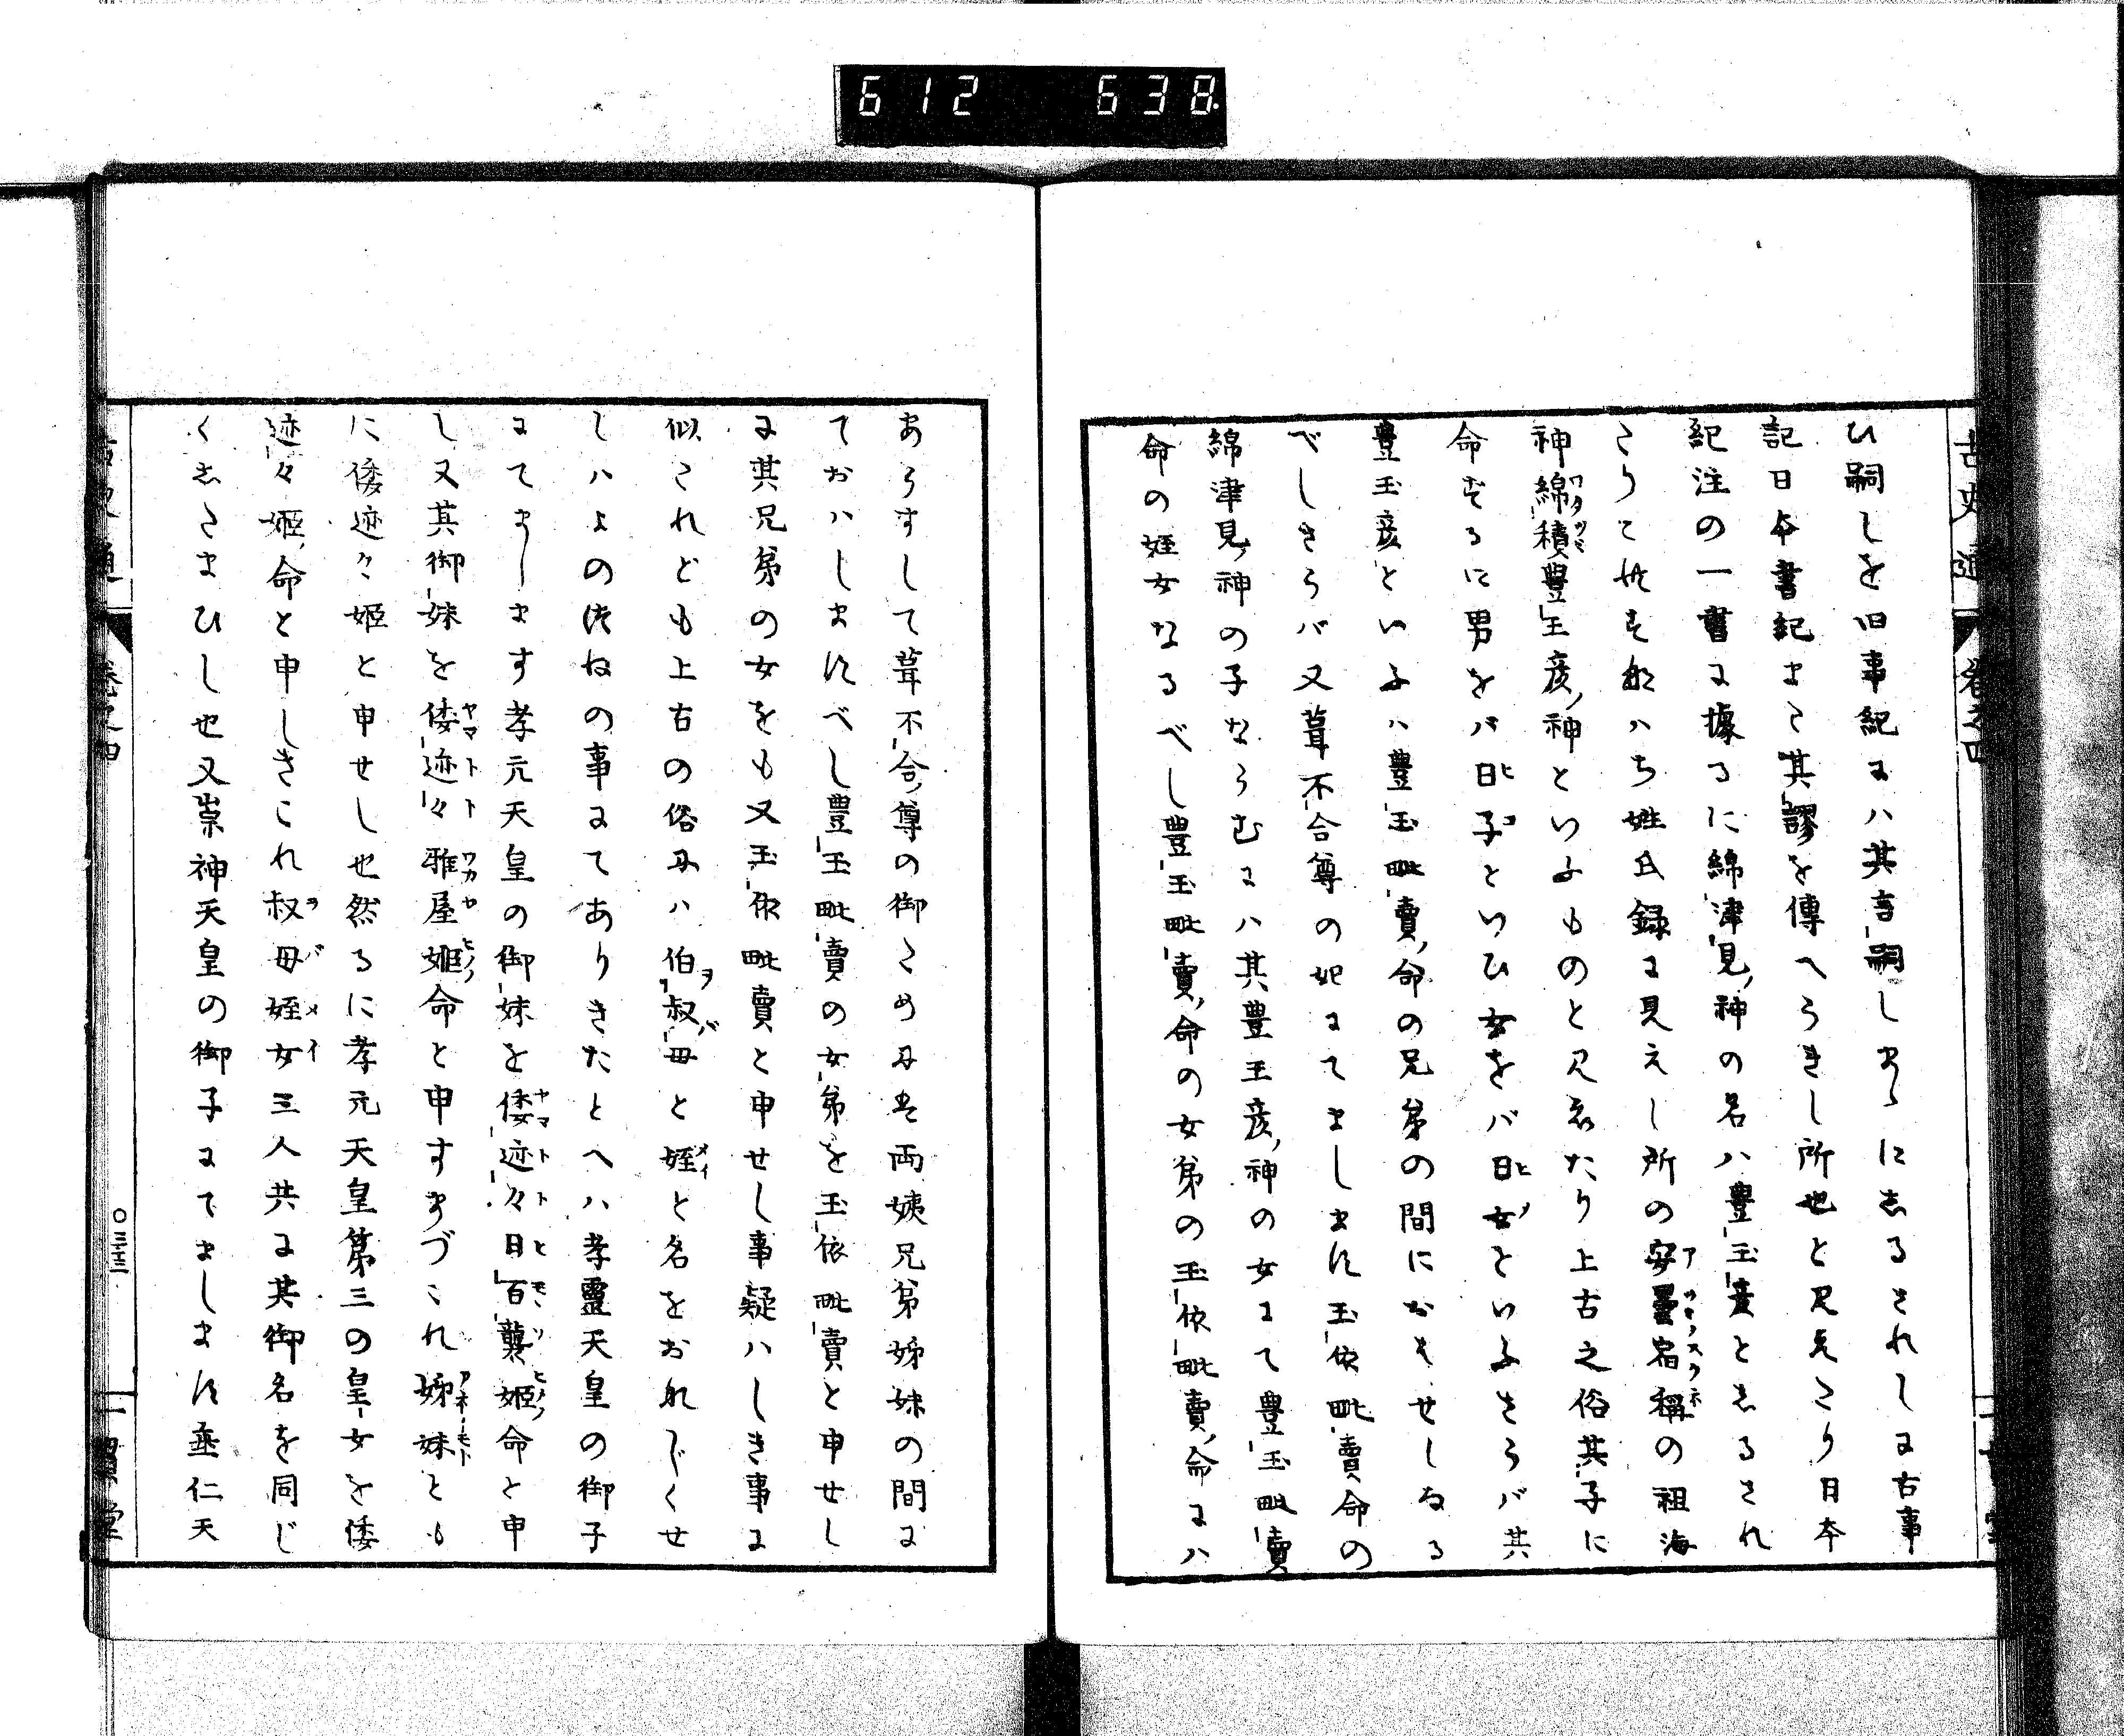 612 638
古史通 卷之四
ひ嗣しを旧事紀にハ其言嗣しまゝにしるされしに古事
記日本書紀また其謬を傳へられし所也と見えたり日本
紀注の一書に據るに綿津見神の名ハ豊玉彦としるされ
たりこれすなハち姓氏録に見えし所の安曇宿禰の祖海
神綿積豊玉彦神といふものと見えたり上古之俗其子に
命ずるに男をバ日子といひ女をバ日女といふさらバ其
豊玉彦といふハ豊玉毗賣命の兄弟の間におはせしなる
べしさらバ又葺不合尊の妃にてましませ玉依毗賣命の
綿津見神の子ならむにハ其豊玉彦神の女にて豊玉毗賣
命の姪女なるべし豊玉毗賣命の女弟の玉依毗賣命にハ
あらずして葺不合尊の御ために両姨兄弟姊妹の間に
ておハしませべし豊玉毗賣の女弟を玉依毗賣と申せし
に其兄弟の女をも又玉依毗賣と申せし事疑ハしき事に
似たれども上古の俗にハ伯叔母と姪と名をおなじくせ
しハよのつねの事にてありきたとへハ孝靈天皇の御子
にてまします孝元天皇の御妹を倭迹々日百襲姫命と申
し又其御妹を倭迹々雅屋姫命と申すまづこれ姊妹とも
に倭迹々姫と申せし也然るに孝元天皇第三の皇女を倭
迹々姫命と申しきこれ叔母姪女三人共に其御名を同じ
くしたまひし也又崇神天皇の御子にてましませ垂仁天
古史通 卷之四 〇三十三